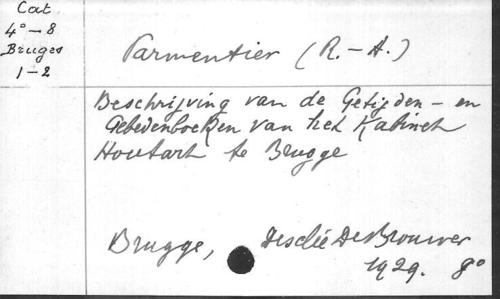 Cat
4° - 8
Bruges
1 - 2
Parmentier (R. - A.)
Beschrijving van de Getijden - en
Gebedenboeken van het Kabinet
Houtart te Brugge
Brugge, Desclée De Brouwer
1929. 8°